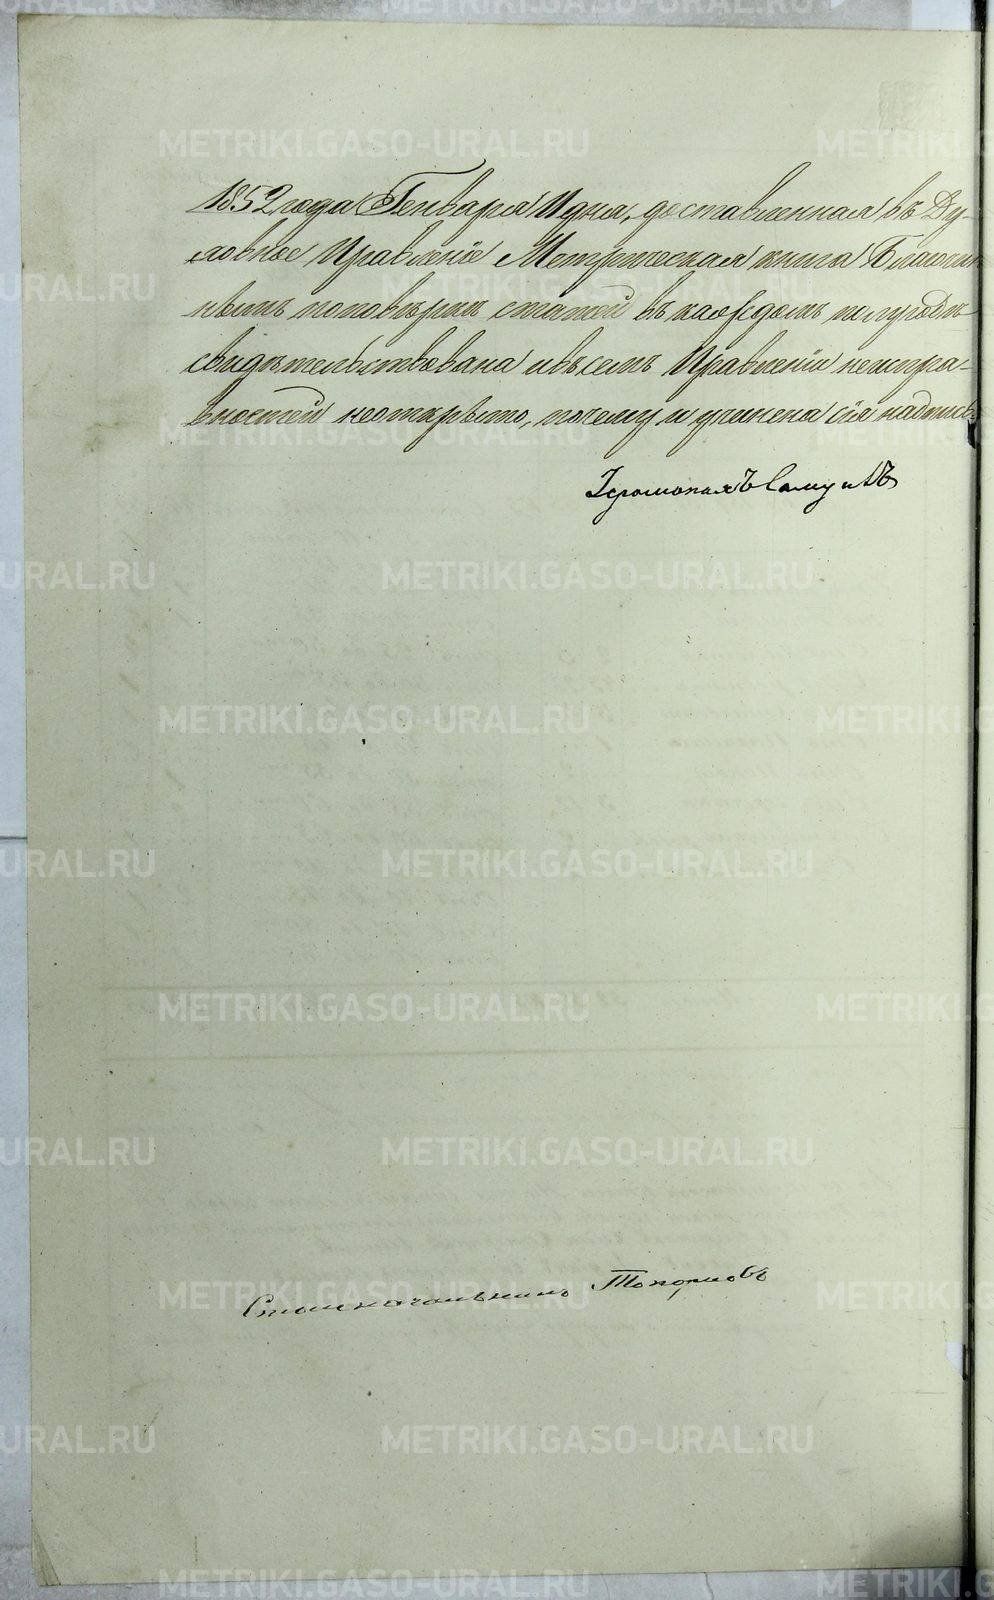 1852 года Генваря дня, доставленная въ Ду-
ховное Правленіе Метрическая книга Благочин
нымъ по повѣркѣ статей въ каждомъ полугодіи
свидѣтельствована и въ семъ Правленіи неиспра-
вностей не открыто, почему и учинена сія надпись.
Іеромонахъ Самуилъ
Столоначальникъ Топорковъ
METRIKI.GASO-URAL.RU